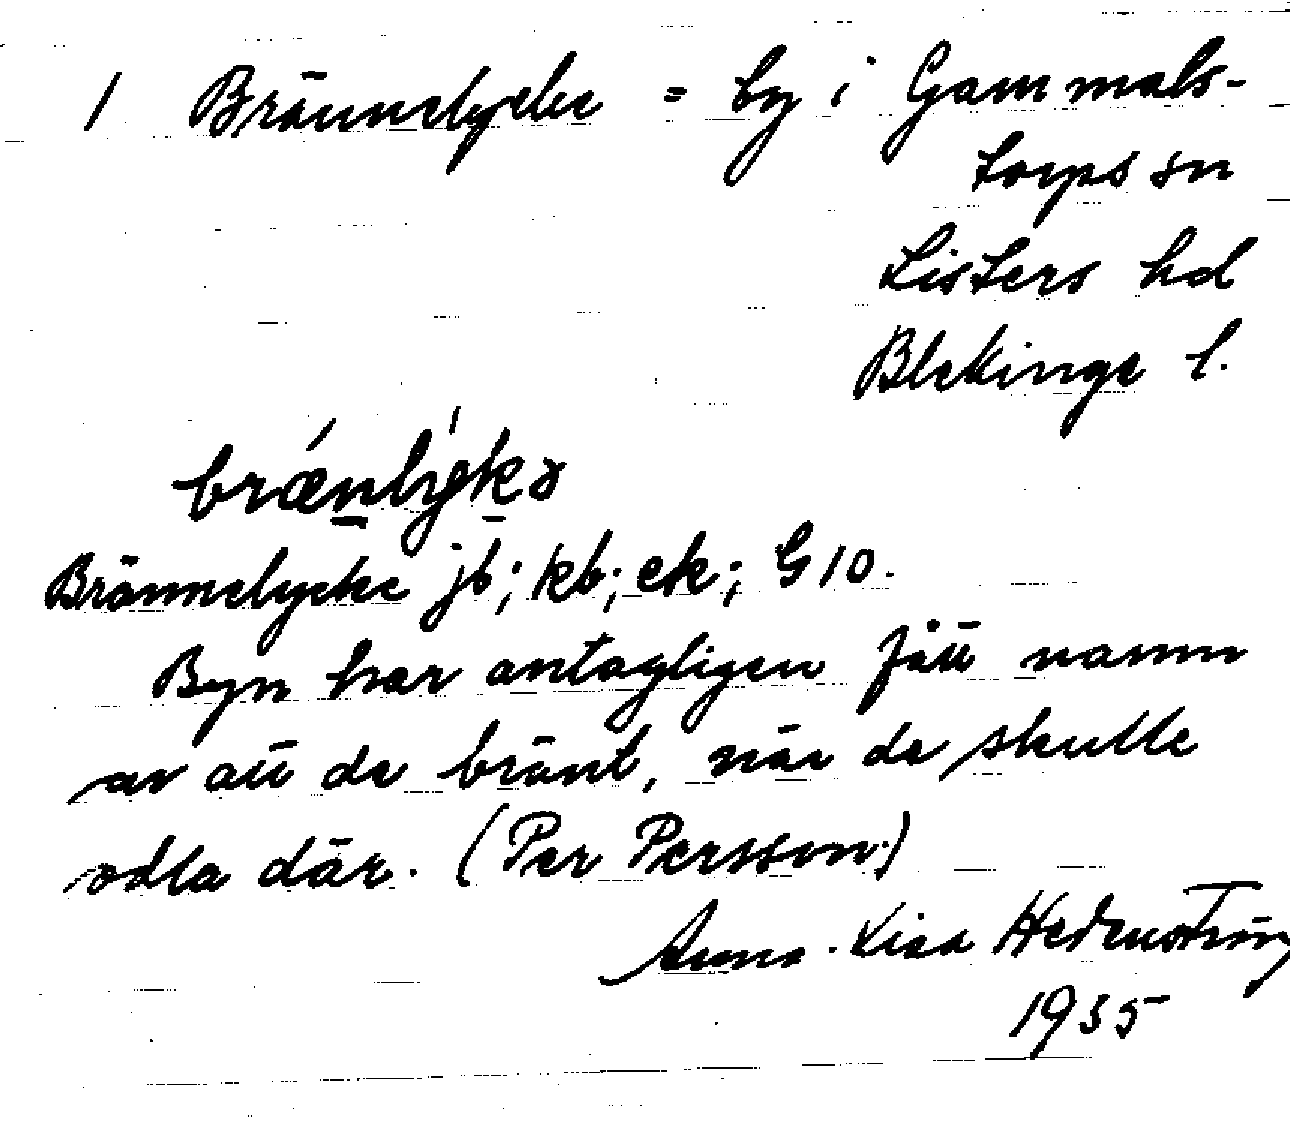 1 Brännelycke = by i Gammals-
torps sn
Listers hd
Blekinge l.
brænlykə
Brännelycke jb; kb; ek; G 10.
Byn har antagligen fått namn
av att de bränt, när de skulle
odla där. (Per Persson.)
Anna-Lisa Hedenström
1935